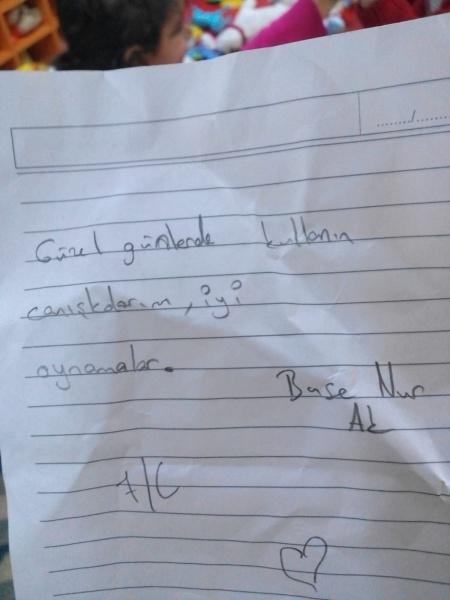 ...../.....
Güzel günlerde kullanın
canışkdarım, iyi
oynamalar.
Buse Nur
Ak
7/C